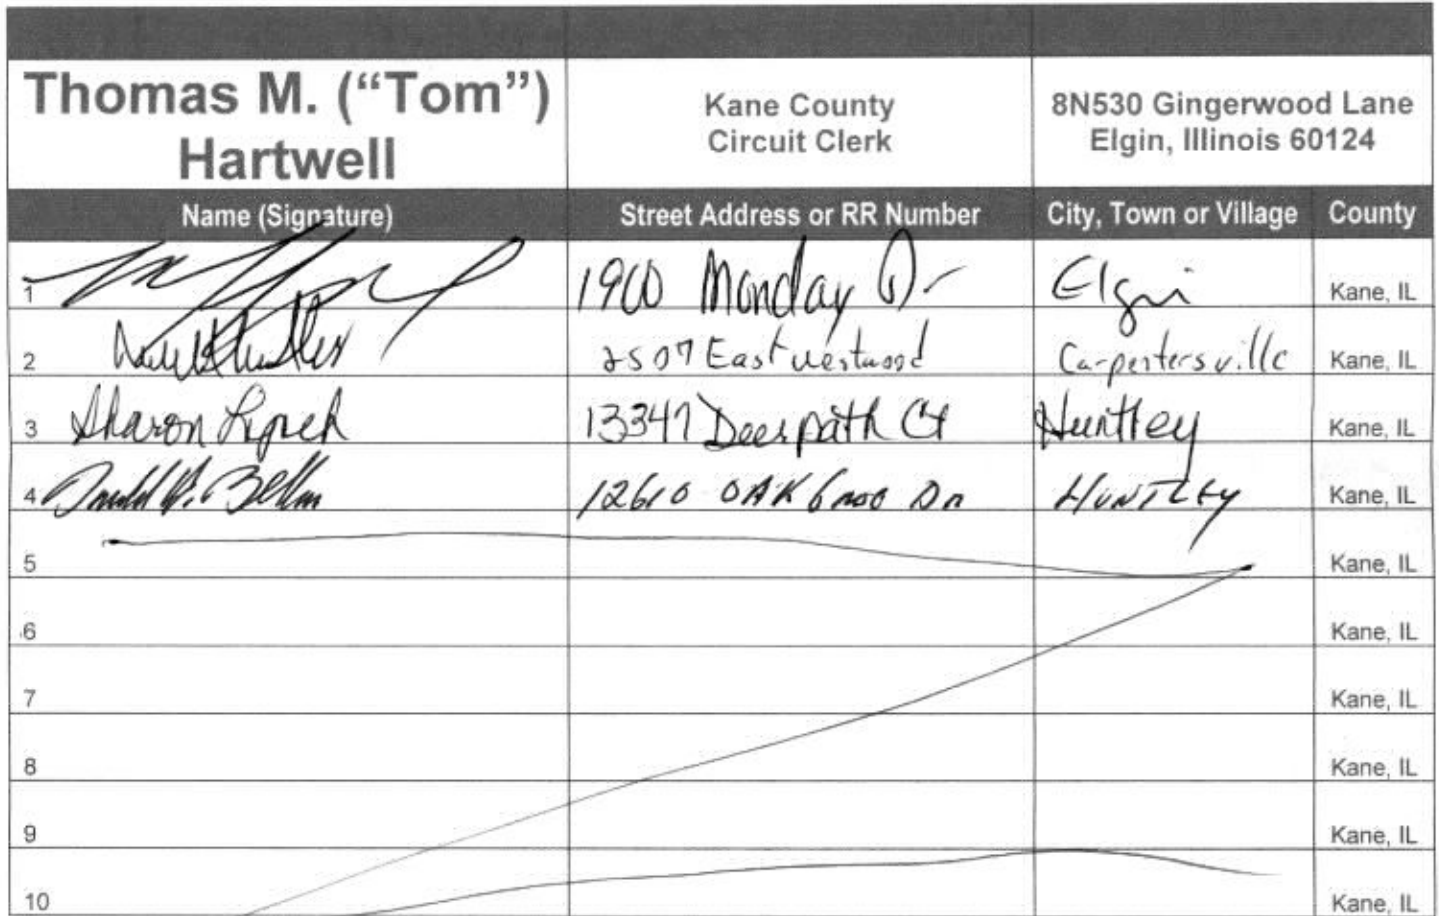 Thomas M. ("Tom") Hartwell
Kane County Circuit Clerk
8N530 Gingerwood Lane Elgin, Illinois 60124
Name (Signature) Street Address or RR Number City, Town or Village County
1 1960 Monday Dr Elgin Kane, IL
2 2507 East westwood Carpentersville Kane, IL
3 Sharon Lynch 13347 Deerpath Ct Huntley Kane, IL
4 12610 OAK Dr HUNTLEY Kane, IL
5 Kane, IL
6 Kane, IL
7 Kane, IL
8 Kane, IL
9 Kane, IL
10 Kane, IL